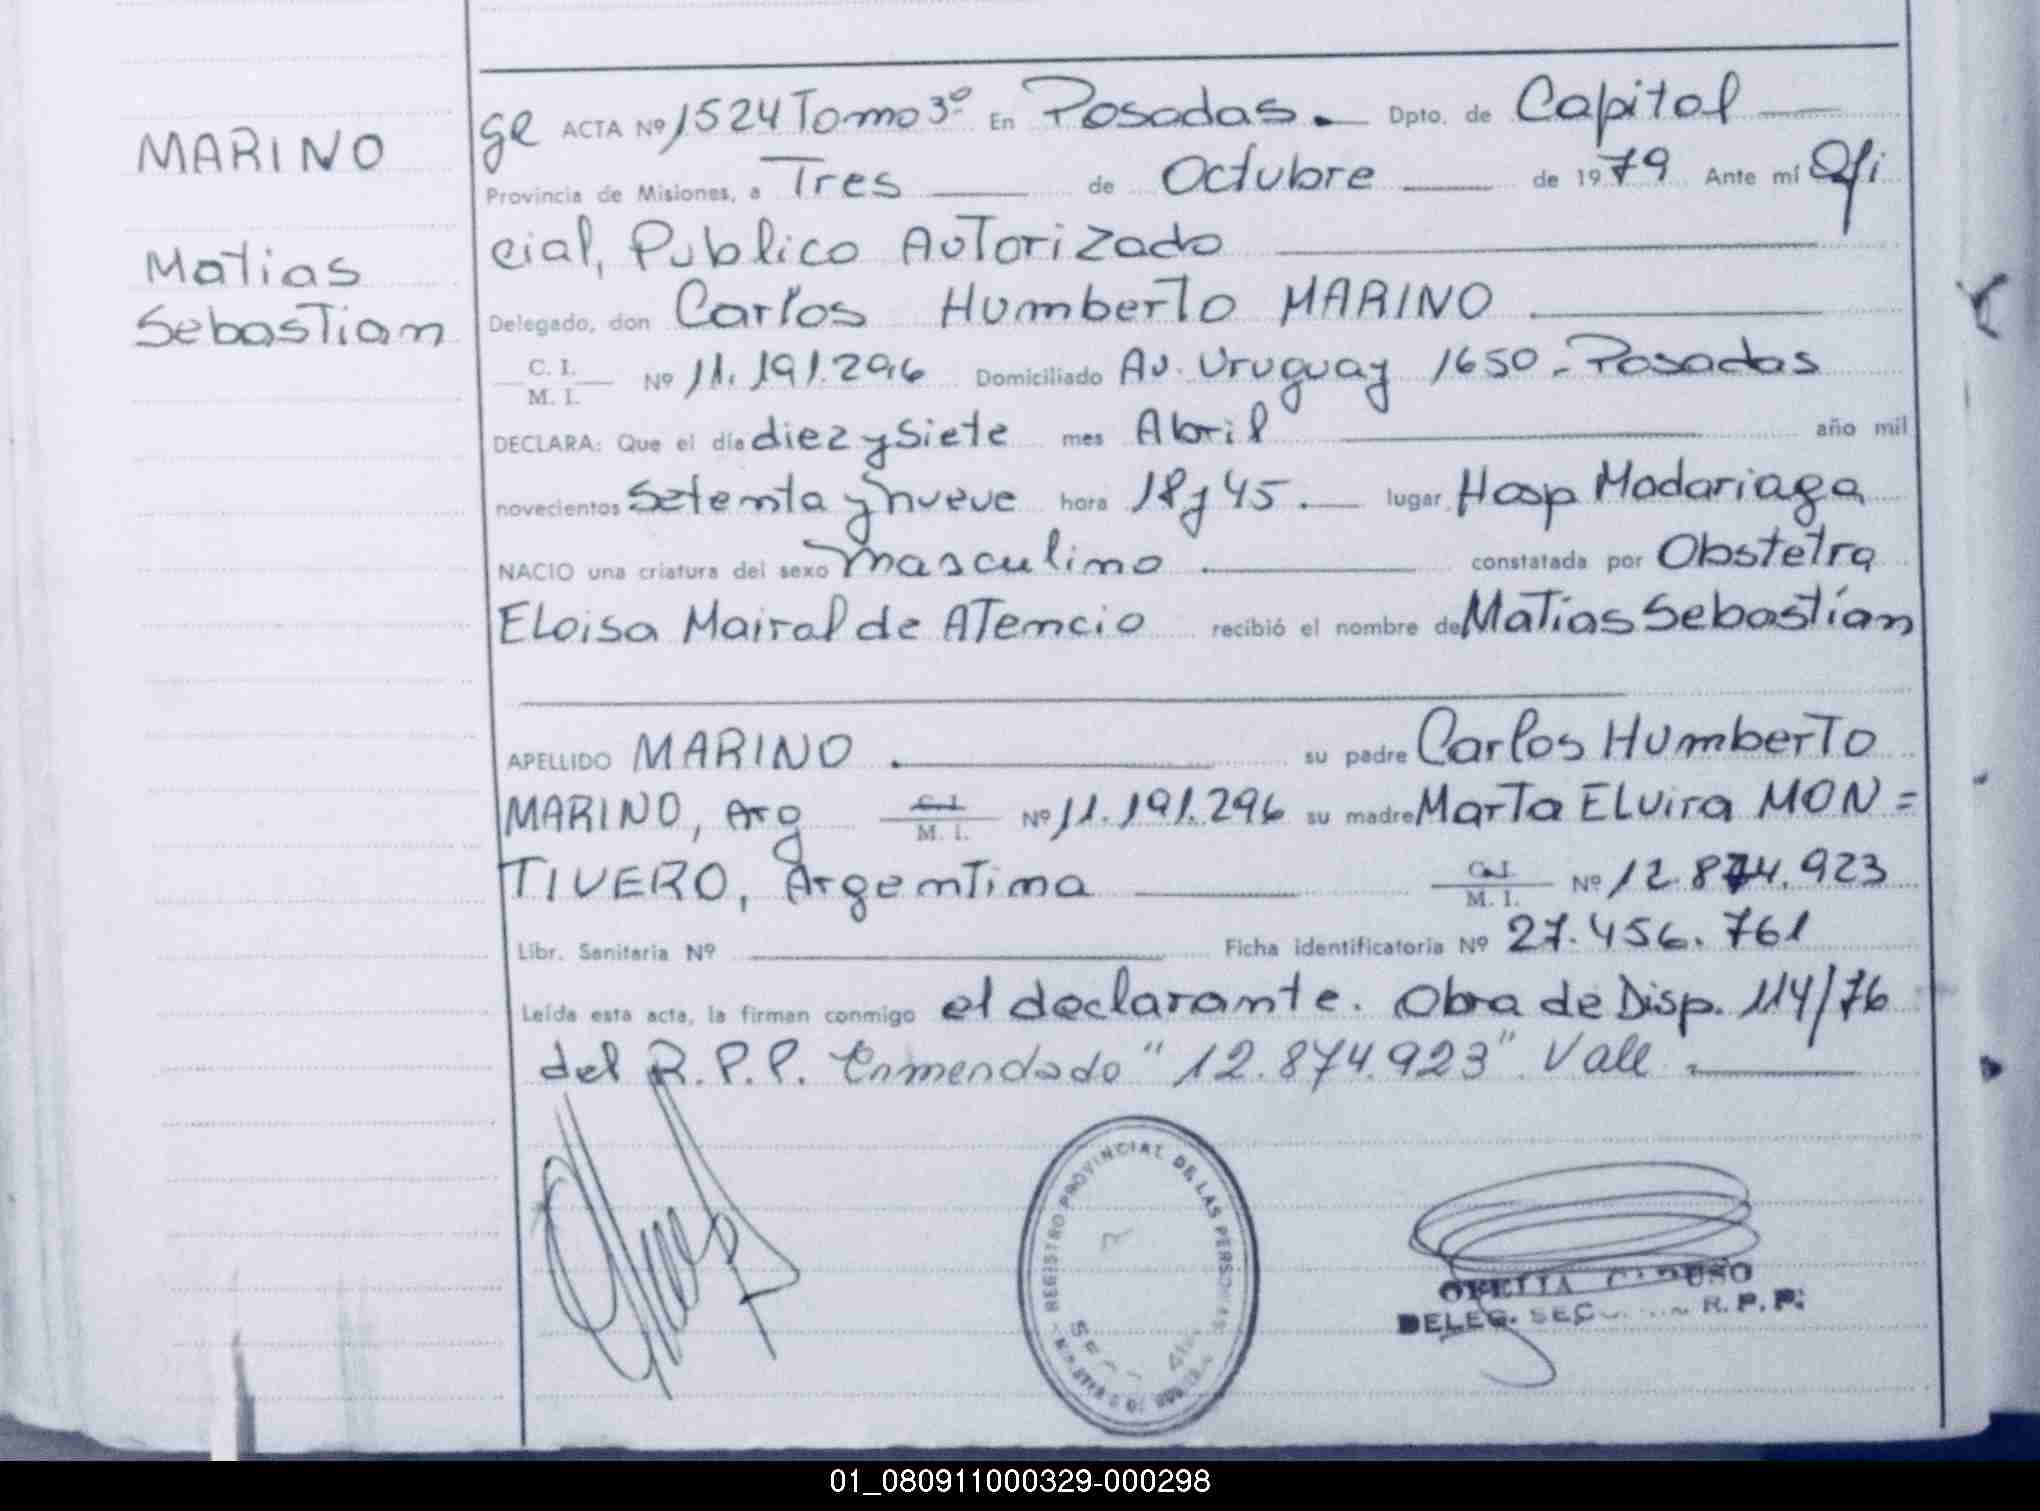 MARINO
Matias
Sebastian
ge ACTA Nº 1524 Tomo 3º En Posadas. Dpto. de Capital
Provincia de Misiones, a Tres de Octubre de 1979 Ante mí Ofi
cial, Publico Autorizado
Delegado, don Carlos Humberto MARINO
C. I.
M. I. Nº 11.191.296 Domiciliado Av. Uruguay 1650 - Posadas
DECLARA: Que el día diez y siete mes Abril año mil
novecientos setenta y nueve hora 18 y 45. lugar Hosp Madariaga
NACIO una criatura del sexo masculino constatada por Obstetra
Eloisa Mairal de Atencio recibió el nombre de Matias Sebastían
APELLIDO MARINO. su padre Carlos Humberto
MARINO, Arg C. I. M. I. Nº 11.191.296 su madre Marta Elvira MON=
TIVERO, Argentina C. I. M. I. Nº 12.874.923
Libr. Sanitaria Nº Ficha identificatoria Nº 27.456.761
Leída esta acta, la firman conmigo el declarante. Obra de Disp. 114/76
del R.P.P. Enmendado "12.874.923" Vale.
REGISTRO PROVINCIAL DE LAS PERSONAS
OFELIA CARUSO
DELEG. R.P.P.
01_080911000329-000298